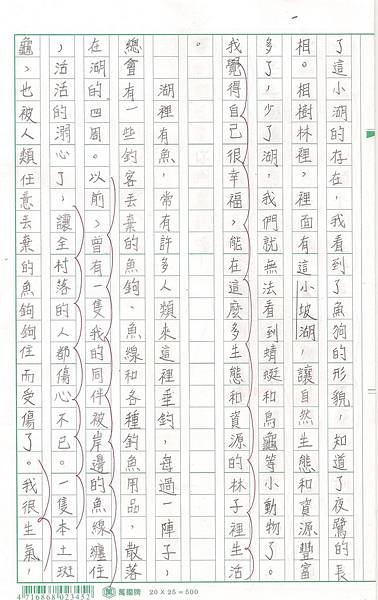 了這小湖的存在，我看到了魚狗的形貌，知道了夜鷺的長
相。相樹林裡，裡面有這小坡湖，讓自然生態和資源豐富
多了，少了湖，我們就無法看到蜻蜓和烏龜等小動物了。
我覺得自己很幸福，能在這麼多生態和資源的林子裡生活
。
湖裡有魚，常有許多人類來這裡垂釣，每過一陣子，
總會有一些釣客丟棄的魚鉤、魚線和各種釣魚用品，散落
在湖的四周。以前，曾有一隻我的同伴被岸邊的魚線纏住
，活活的溺心了，讓全村落的人都傷心不已。一隻本土斑
龜，也被人類任意丟棄的魚鉤鉤住而受傷了。我很生氣，
4716868023452 萬國牌 20 X 25 = 500